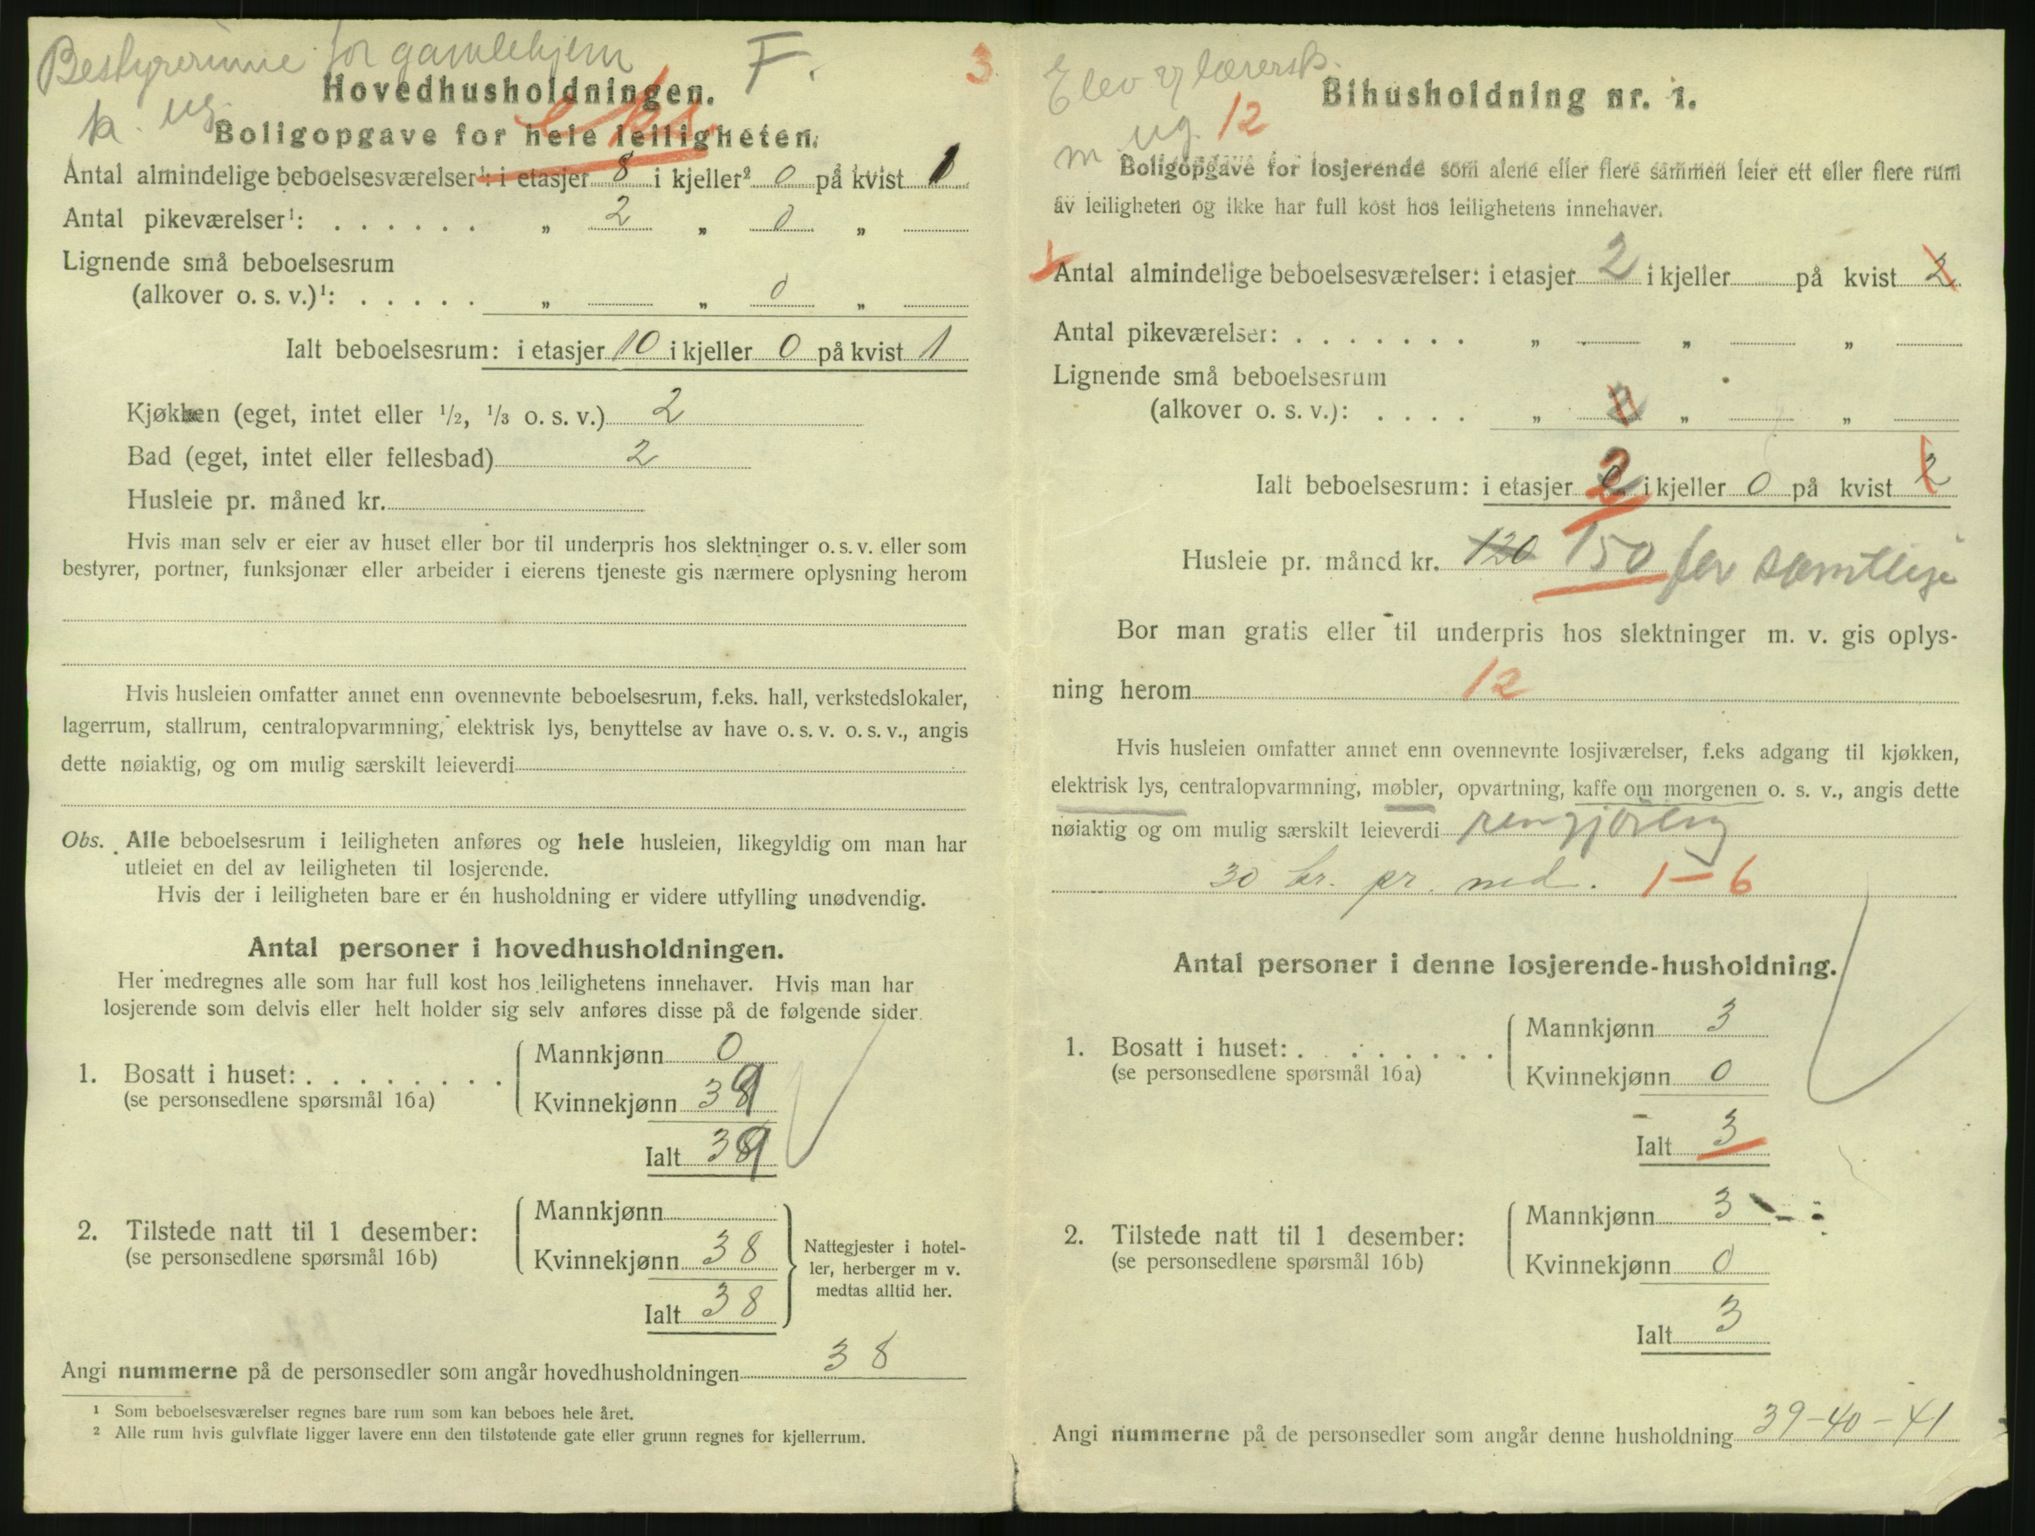 Bestyrerinne for gamlehjem F. 3
k. ug.
Hovedhusholdningen.
eks
Boligopgave for hele leiligheten.
Antal almindelige beboelsesværelser¹: i etasjer 8 i kjeller² 0 på kvist 1
Antal pikeværelser¹: . . . . . . „ 2 „ 0 „
Lignende små beboelsesrum
(alkover o. s. v.)¹: . . . . . „ „ 0 „
Ialt beboelsesrum: i etasjer 10 i kjeller 0 på kvist 1
Kjøkken (eget, intet eller 1/2, 1/3 o. s. v.) 2
Bad (eget, intet eller fellesbad) 2
Husleie pr. måned kr.
Hvis man selv er eier av huset eller bor til underpris hos slektninger o. s. v. eller som
bestyrer, portner, funksjonær eller arbeider i eierens tjeneste gis nærmere oplysning herom
Hvis husleien omfatter annet enn ovennevnte beboelsesrum, f.eks. hall, verkstedslokaler,
lagerrum, stallrum, centralopvarmning, elektrisk lys, benyttelse av have o. s. v. o. s. v., angis
dette nøiaktig, og om mulig særskilt leieverdi
Obs. Alle beboelsesrum i leiligheten anføres og hele husleien, likegyldig om man har
utleiet en del av leiligheten til losjerende.
Hvis der i leiligheten bare er én husholdning er videre utfylling unødvendig.
Antal personer i hovedhusholdningen.
Her medregnes alle som har full kost hos leilighetens innehaver. Hvis man har
losjerende som delvis eller helt holder sig selv anføres disse på de følgende sider.
1. Bosatt i huset: . . . . . . . . Mannkjønn 0
(se personsedlene spørsmål 16a) Kvinnekjønn 39
Ialt 39
2. Tilstede natt til 1 desember: Mannkjønn
(se personsedlene spørsmål 16b) Kvinnekjønn 38
Ialt 38
Nattegjester i hotel-
ler, herberger m v.
medtas alltid her.
Angi nummerne på de personsedler som angår hovedhusholdningen 38
¹ Som beboelsesværelser regnes bare rum som kan beboes hele året.
² Alle rum hvis gulvflate ligger lavere enn den tilstøtende gate eller grunn regnes for kjellerrum.
Elev v/ lærersk.
m ug. 12
Bihusholdning nr. 1.
Boligopgave for losjerende som alene eller flere sammen leier ett eller flere rum
av leiligheten og ikke har full kost hos leilighetens innehaver.
Antal almindelige beboelsesværelser: i etasjer 2 i kjeller på kvist 2
Antal pikeværelser: . . . . . . . „ „ „
Lignende små beboelsesrum
(alkover o. s. v.): . . . . „ 2 „ „
Ialt beboelsesrum: i etasjer 2 i kjeller 0 på kvist 2
Husleie pr. måned kr. 120 150 for samtlige
Bor man gratis eller til underpris hos slektninger m. v. gis oplys-
ning herom 12
Hvis husleien omfatter annet enn ovennevnte losjiværelser, f.eks adgang til kjøkken,
elektrisk lys, centralopvarmning, møbler, opvartning, kaffe om morgenen o. s. v., angis dette
nøiaktig og om mulig særskilt leieverdi rengjöring
30 kr. pr. md. 1-6
Antal personer i denne losjerende-husholdning.
1. Bosatt i huset: . . . . . . . . Mannkjønn 3
(se personsedlene spørsmål 16a) Kvinnekjønn 0
Ialt 3
2. Tilstede natt til 1 desember: Mannkjønn 3
(se personsedlene spørsmål 16b) Kvinnekjønn 0
Ialt 3
Angi nummerne på de personsedler som angår denne husholdning 39-40-41